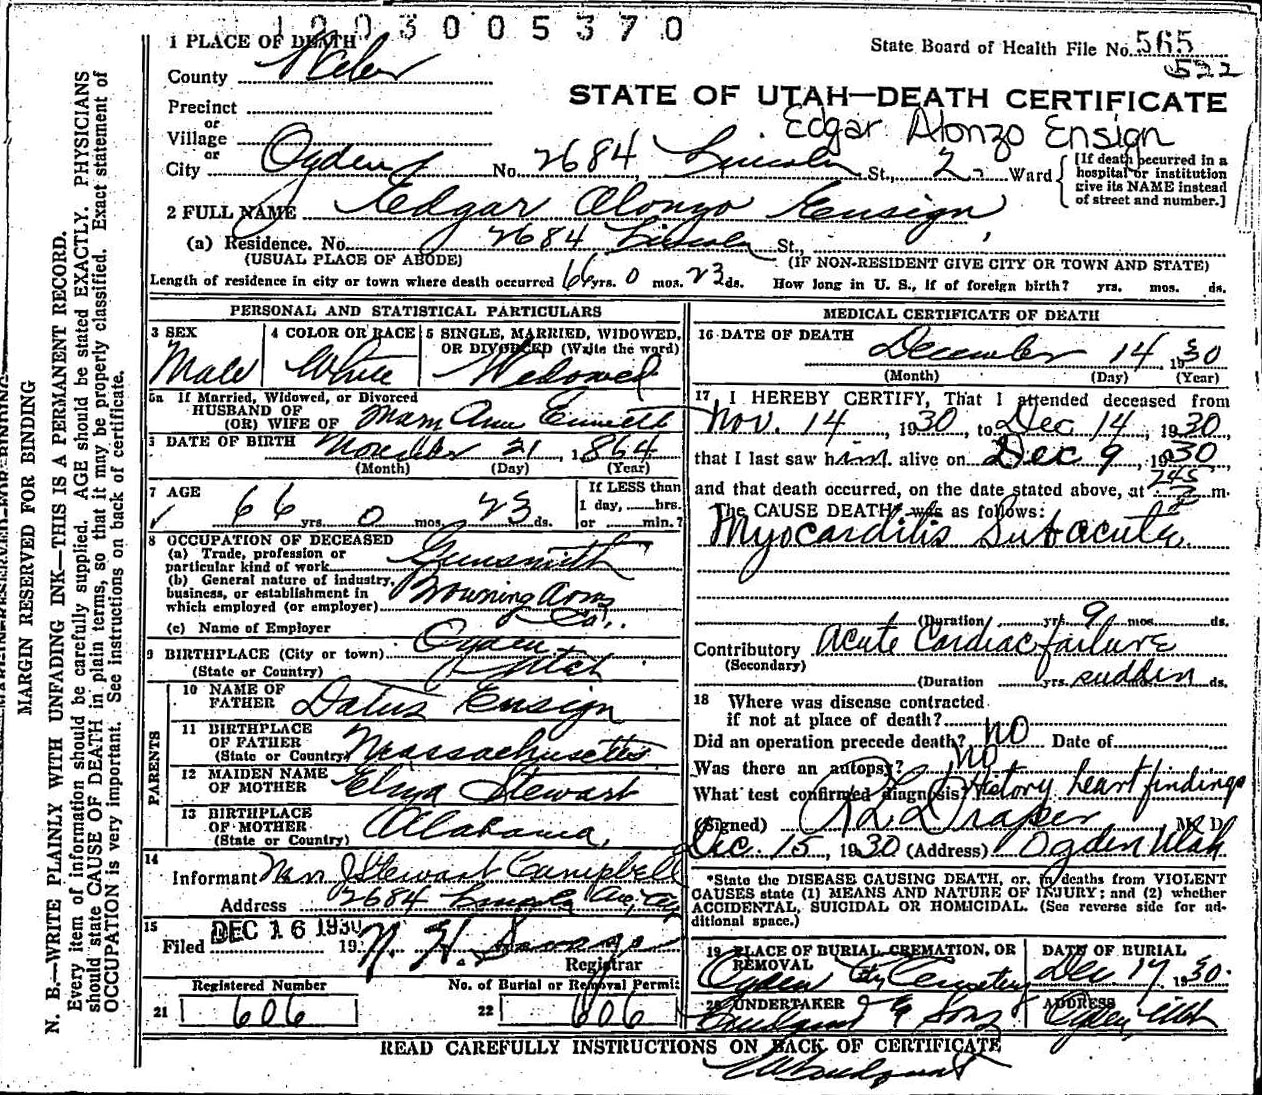 1 2 0 3 0 0 5 3 7 0
1 PLACE OF DEATH
State Board of Health File No. 565
522
County Weber
STATE OF UTAH—DEATH CERTIFICATE
Precinct
or
Village
Edgar Alonzo Ensign
or
City Ogden No. 2684, Lincoln St., 2 Ward
[If death occurred in a
hospital or institution
give its NAME instead
of street and number.]
2 FULL NAME Edgar Alonzo Ensign
(a) Residence. No. 2684 Lincoln St.,
(USUAL PLACE OF ABODE) (IF NON-RESIDENT GIVE CITY OR TOWN AND STATE)
Length of residence in city or town where death occurred 66 yrs. 0 mos. 23 ds. How long in U. S., if of foreign birth? yrs. mos. ds.
PERSONAL AND STATISTICAL PARTICULARS
3 SEX
Male
4 COLOR OR RACE
White
5 SINGLE, MARRIED, WIDOWED,
OR DIVORCED (Write the word)
Widowed
5a If Married, Widowed, or Divorced
HUSBAND OF
(OR) WIFE OF Mary Ann Emmett
6 DATE OF BIRTH November 21, 1864
(Month) (Day) (Year)
7 AGE
66 yrs. 0 mos. 23 ds.
If LESS than
1 day, hrs.
or min.?
8 OCCUPATION OF DECEASED
(a) Trade, profession or
particular kind of work Gunsmith
(b) General nature of industry,
business, or establishment in
which employed (or employer) Browning Arms
Co.
(c) Name of Employer
9 BIRTHPLACE (City or town) Ogden
(State or Country) Utah
PARENTS
10 NAME OF
FATHER Datus Ensign
11 BIRTHPLACE
OF FATHER
(State or Country) Massachusetts
12 MAIDEN NAME
OF MOTHER Eliza Stewart
13 BIRTHPLACE
OF MOTHER
(State or Country) Alabama,
14
Informant Stewart Campbell
Address 2684 Lincoln Ave,
15
Filed DEC 16 1930 19
Registrar
Registered Number
21 606
No. of Burial or Removal Permit
22 606
MEDICAL CERTIFICATE OF DEATH
16 DATE OF DEATH
December 14 1930
(Month) (Day) (Year)
17 I HEREBY CERTIFY, That I attended deceased from
Nov. 14, 1930, to Dec 14, 1930,
that I last saw him alive on Dec 9, 1930
and that death occurred, on the date stated above, at 245 m.
The CAUSE DEATH was as follows:
Myocarditis Subacute
(Duration yrs. 9 mos. ds.
Contributory Acute Cardiac failure
(Secondary)
(Duration yrs. sudden ds.
18 Where was disease contracted
if not at place of death?
Did an operation precede death? no Date of
Was there an autopsy? no
What test confirmed diagnosis? History heart findings
(Signed) Draper M. D.
Dec. 15, 1930 (Address) Ogden Utah
*State the DISEASE CAUSING DEATH, or, in deaths from VIOLENT
CAUSES state (1) MEANS AND NATURE OF INJURY; and (2) whether
ACCIDENTAL, SUICIDAL OR HOMICIDAL. (See reverse side for ad-
ditional space.)
19 PLACE OF BURIAL, CREMATION, OR
REMOVAL
Ogden City Cemetery
DATE OF BURIAL
Dec 17, 1930.
20 UNDERTAKER
& Sons
ADDRESS
Ogden, Utah
READ CAREFULLY INSTRUCTIONS ON BACK OF CERTIFICATE
MARGIN RESERVED FOR BINDING
N. B.—WRITE PLAINLY WITH UNFADING INK—THIS IS A PERMANENT RECORD.
Every item of information should be carefully supplied. AGE should be stated EXACTLY. PHYSICIANS
should state CAUSE OF DEATH in plain terms, so that it may be properly classified. Exact statement of
OCCUPATION is very important. See instructions on back of certificate.